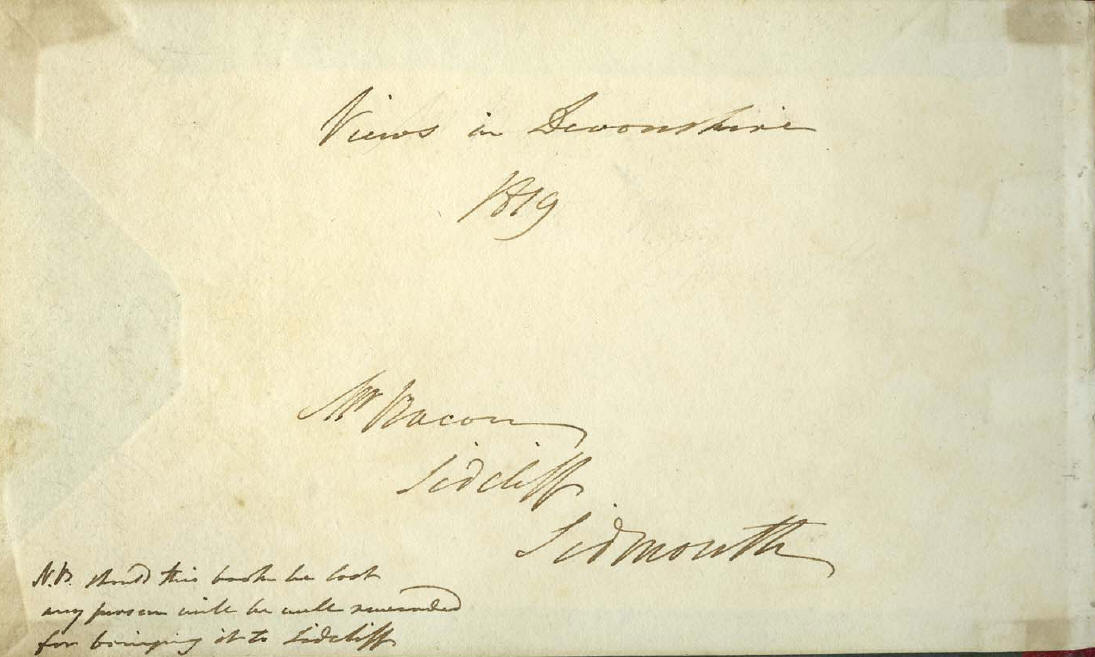 Views in Devonshire
1819
Mr Bacon
Sidcliff
Sidmouth
N.B. should this book be lost
any person will be well rewarded
for bringing it to Sidcliff